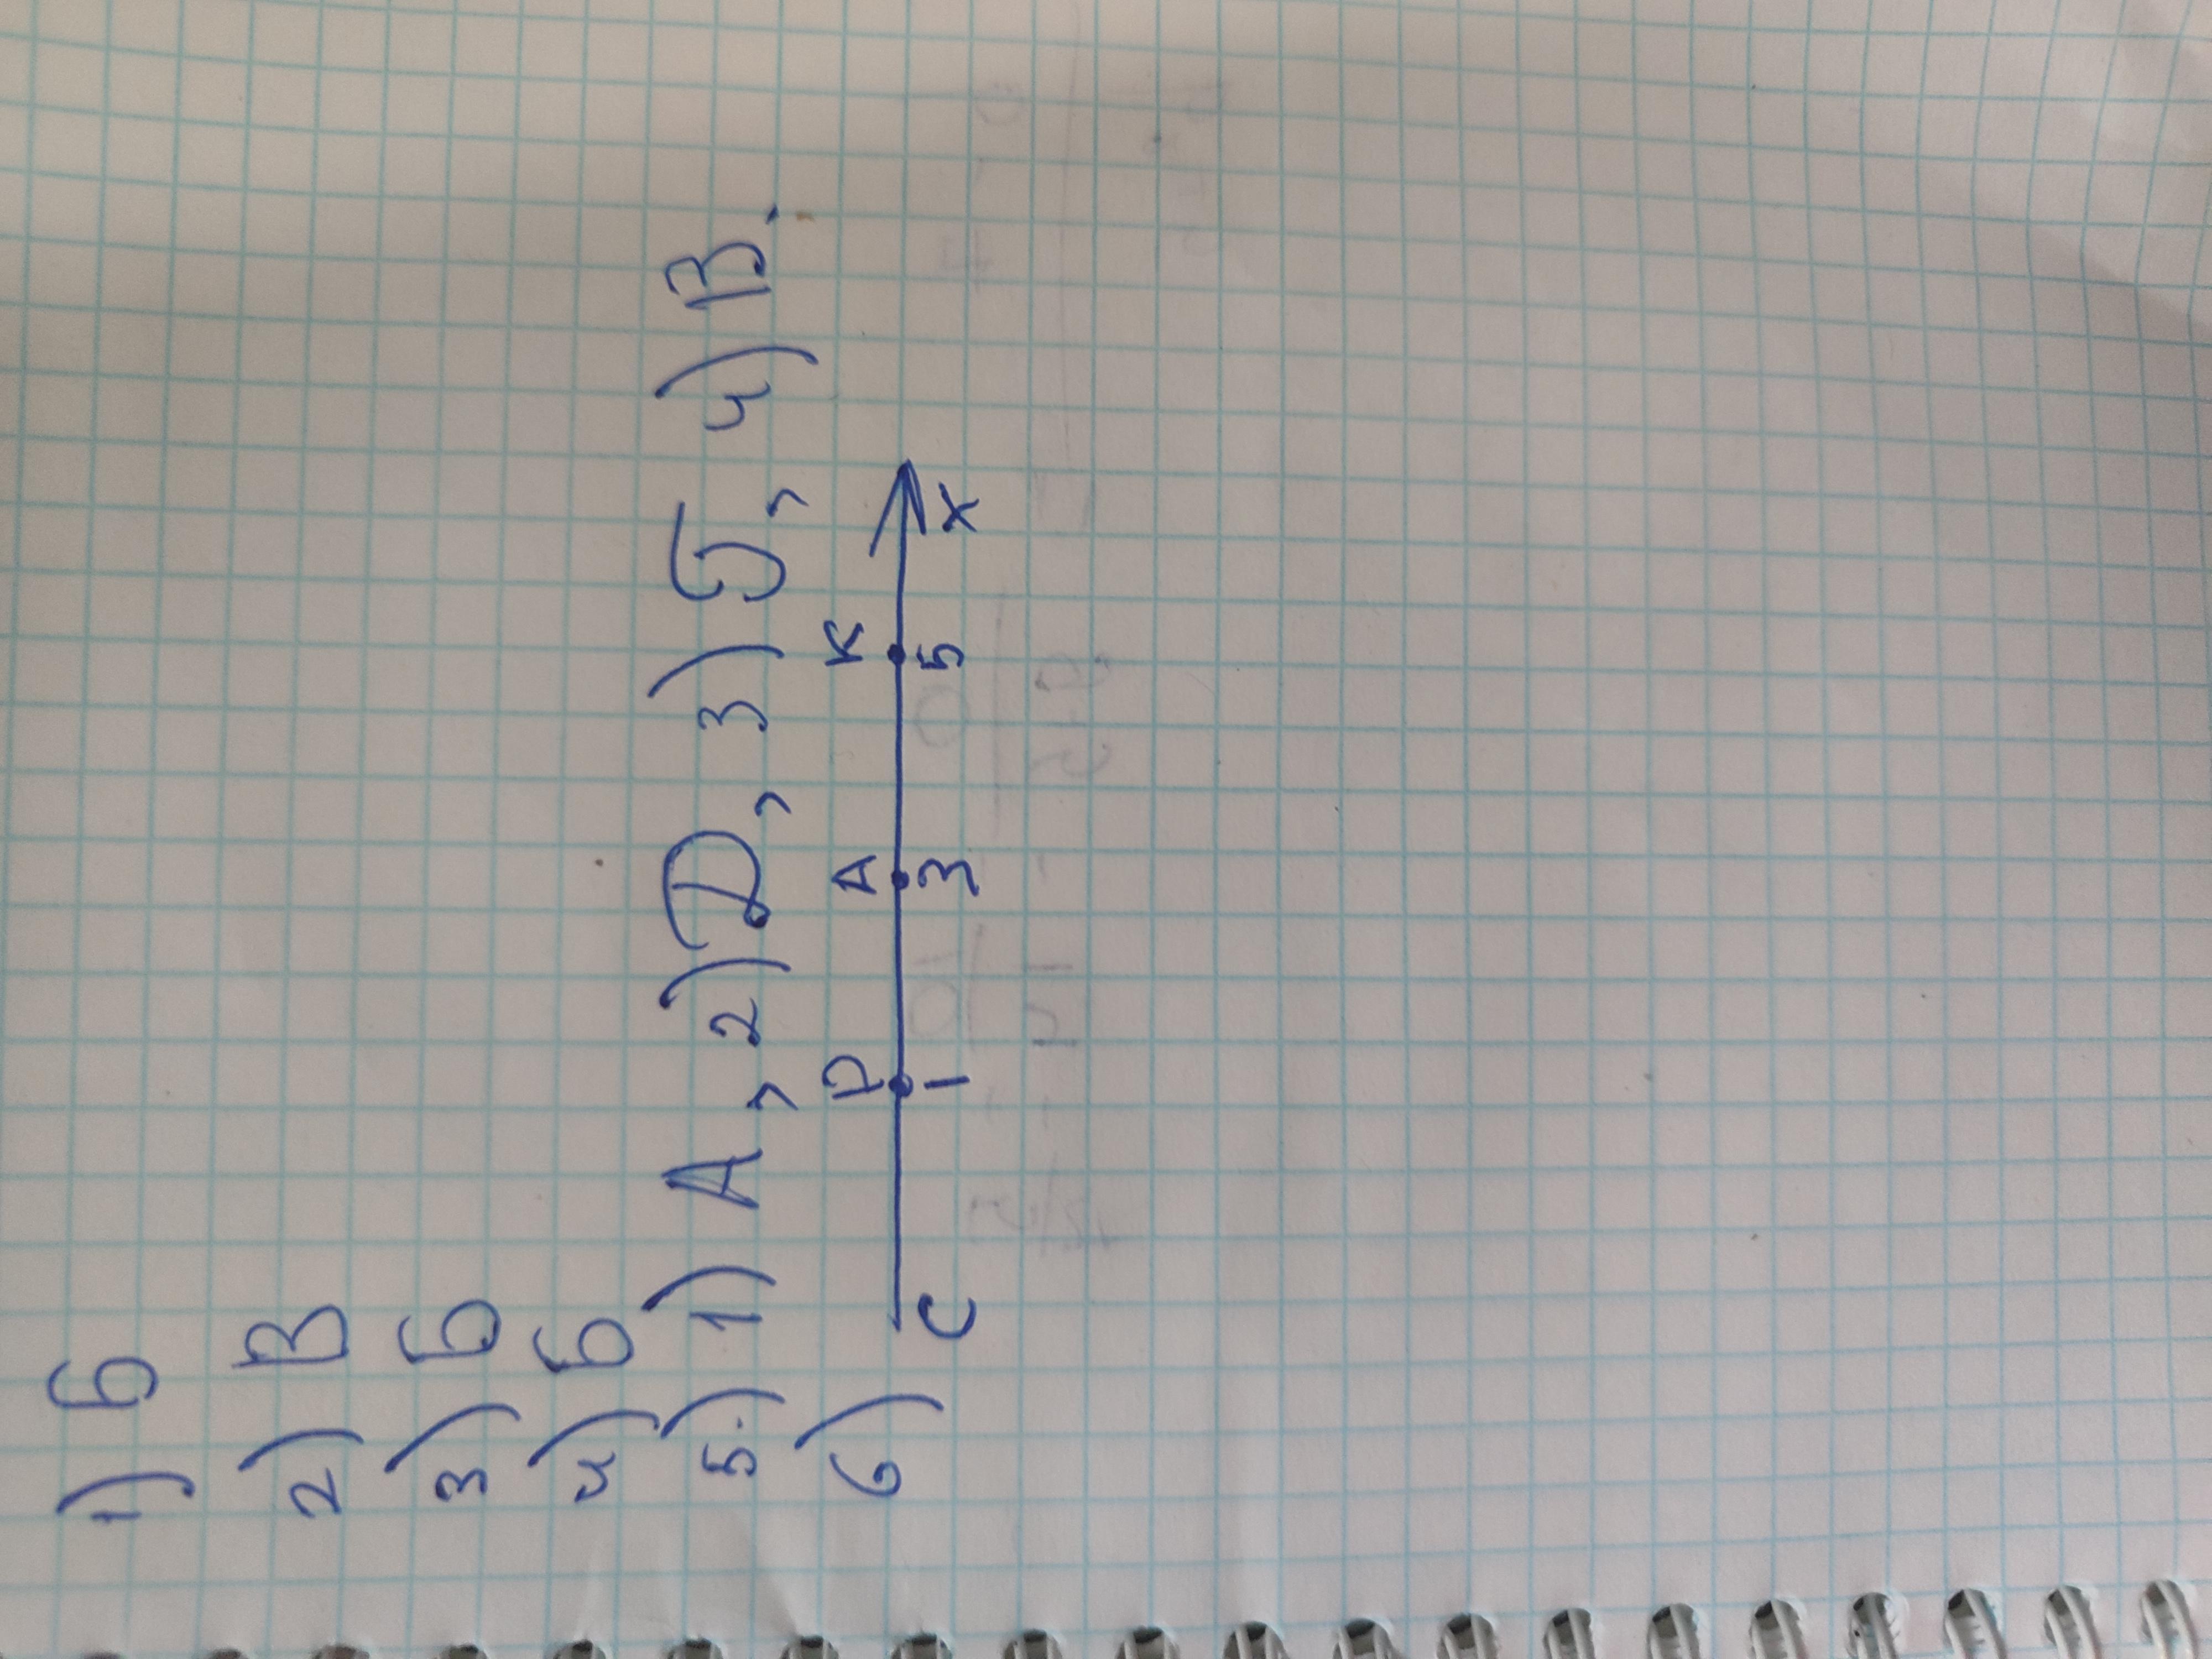 1) Б
2) В
3) Б
4) Б
5.) 1) А, 2) D, 3) Б, 4) В.
6)
D A K
C 1 3 5 X